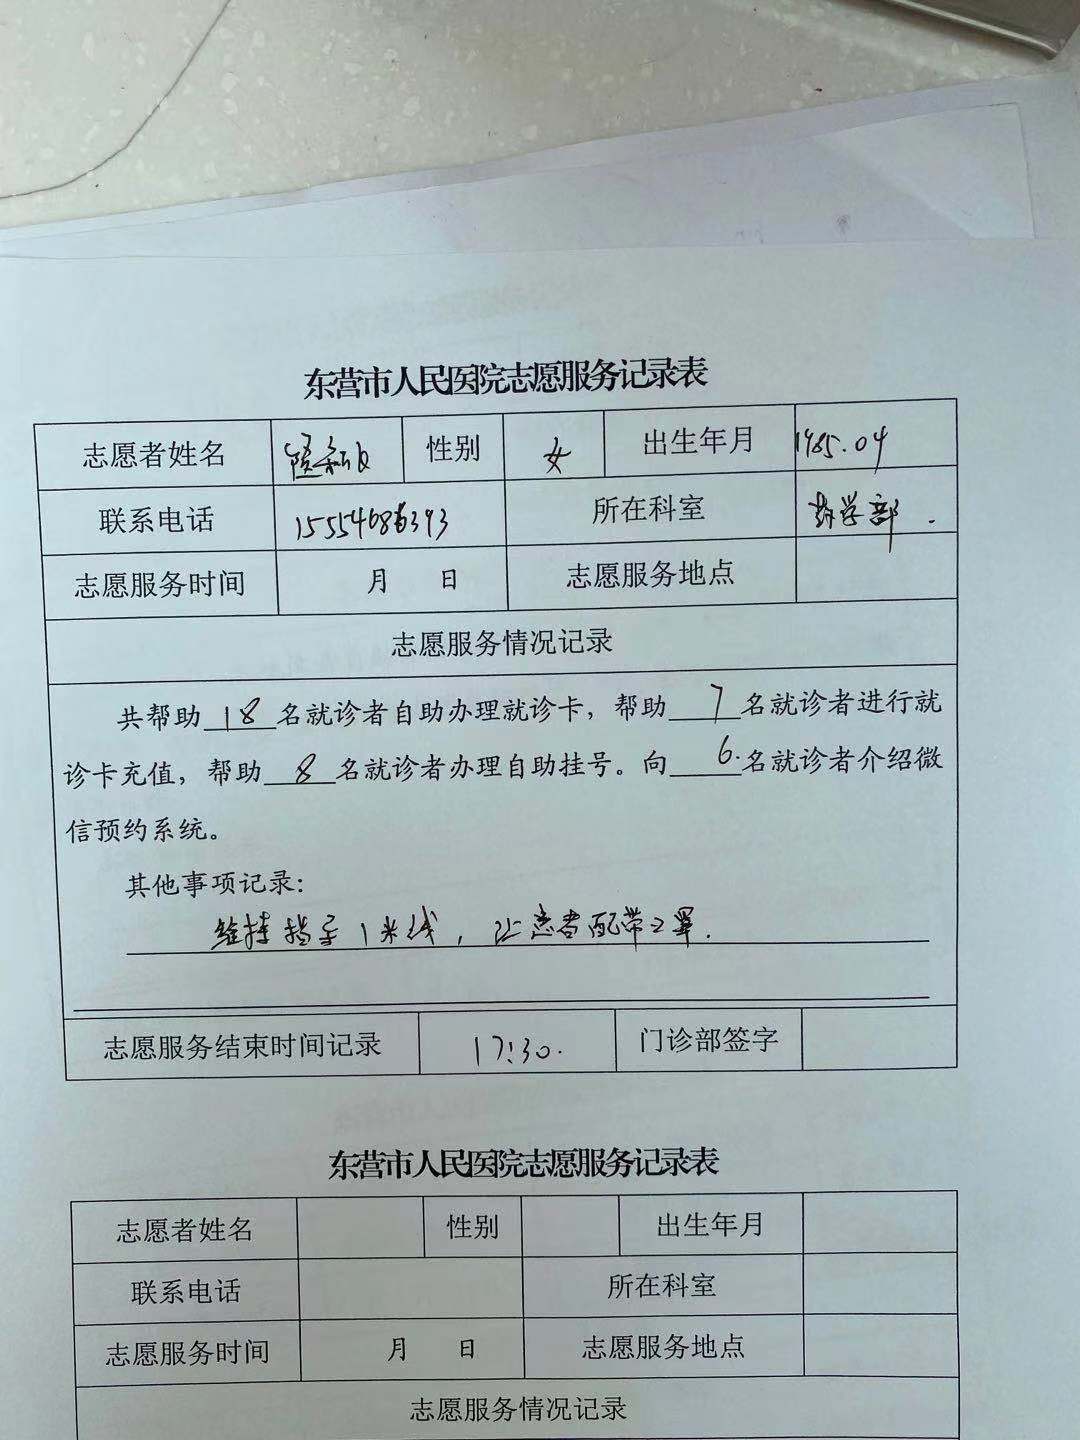 东营市人民医院志愿服务记录表
志愿者姓名 性别 女 出生年月 1985.04
联系电话 所在科室 药学部.
志愿服务时间 月 日 志愿服务地点
志愿服务情况记录
共帮助 18 名就诊者自助办理就诊卡，帮助 7 名就诊者进行就
诊卡充值，帮助 8 名就诊者办理自助挂号。向 6. 名就诊者介绍微
信预约系统。
其他事项记录：
维持指导1米线，让患者配带口罩.
志愿服务结束时间记录 17:30. 门诊部签字
东营市人民医院志愿服务记录表
志愿者姓名 性别 出生年月
联系电话 所在科室
志愿服务时间 月 日 志愿服务地点
志愿服务情况记录